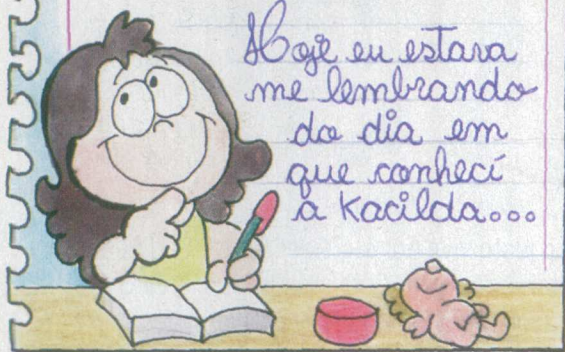 Hoje eu estava
me lembrando
do dia em
que conhecí
a Kacilda...